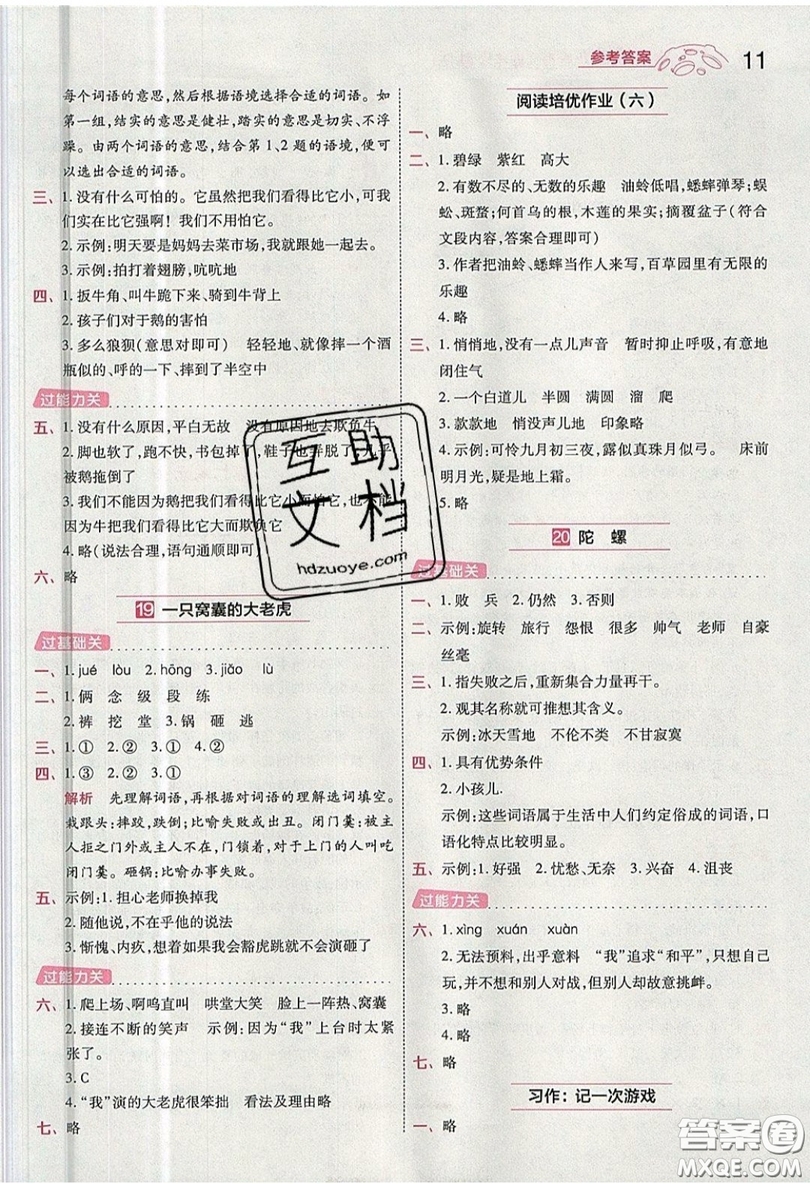 参考答案
11
每个词语的意思,然后根据语境选择合适的词语。如
第一组,结实的意思是健壮,踏实的意思是切实、不浮
躁。由两个词语的意思,结合第1、2题的语境,便可
以选出合适的词语。
三、1.没有什么可怕的。它虽然把我们看得比它小,可我
们实在比它强啊!我们不用怕它。
2.示例:明天要是妈妈去菜市场,我就跟她一起去。
3.示例:拍打着翅膀,吭吭地
四、1.扳牛角、叫牛跪下来、骑到牛背上
2.孩子们对于鹅的害怕
3.多么狼狈(意思对即可) 轻轻地、就像摔一个酒
瓶似的、呼的一下、摔到了半空中
过能力关
五、1.没有什么原因,平白无故 没有原因地去欺负牛
2.脚也软了,跑不快,书包掉了,鞋子也弄脱了,几乎
被鹅拖倒了
3.我们不能因为鹅把我们看得比它小而怕它,也不能
因为牛把我们看得比它大而欺负它
4.略(说法合理,语句通顺即可)
六、略
19 一只窝囊的大老虎
过基础关
一、1.jué lòu 2.hōng 3.jiāo lù
二、1.俩 念 级 段 练
2.裤 挖 堂 3.锅 砸 逃
三、1.① 2.② 3.① 4.②
四、1.③ 2.② 3.①
解析 先理解词语,再根据对词语的理解选词填空。
栽跟头:摔跤,跌倒;比喻失败或出丑。闭门羹:被主
人拒之门外或主人不在,门锁着,对于上门的人叫吃
闭门羹。砸锅:比喻办事失败。
五、示例:1.担心老师换掉我
2.随他说,不在乎他的说法
3.惭愧、内疚,想着如果我会豁虎跳就不会演砸了
过能力关
六、1.爬上场、啊呜直叫 哄堂大笑 脸上一阵热、窝囊
2.接连不断的笑声 示例:因为“我”上台时太紧
张了。
3.C
4.“我”演的大老虎很笨拙 看法及理由略
七、略
阅读培优作业(六)
一、略
二、1.碧绿 紫红 高大
2.有数不尽的、无数的乐趣 油蛉低唱,蟋蟀弹琴;蜈
蚣、斑蝥;何首乌的根,木莲的果实;摘覆盆子(符合
文段内容,答案合理即可)
3.作者把油蛉、蟋蟀当作人来写,百草园里有无限的
乐趣
4.略
三、1.悄悄地,没有一点儿声音 暂时抑止呼吸,有意地
闭住气
2.一个白道儿 半圆 满圆 溜 爬
3.款款地 悄没声息地 印象略
4.示例:可怜九月初三夜,露似真珠月似弓。 床前
明月光,疑是地上霜。
5.略
20 陀 螺
过基础关
一、1.败 兵 2.仍然 3.否则
二、示例:旋转 旅行 怨恨 很多 帅气 老师 自豪
丝毫
三、1.指失败之后,重新集合力量再干。
2.观其名称就可推想其含义。
示例:冰天雪地 不伦不类 不甘寂寞
四、1.具有优势条件
2.小孩儿.
示例:这些词语属于生活中人们约定俗成的词语,口
语化特点比较明显。
五、示例:1.好强 2.忧愁、无奈 3.兴奋 4.沮丧
过能力关
六、1.xìng xuán xuàn
2.无法预料,出乎意料 “我”追求“和平”,只想自己
玩,并不想和别人对战,但别人想挑衅。
3.略
4.略
七、略
习作:记一次游戏
一、略
互助
文档
hdzuoye.com
答案圈
MXQE.COM